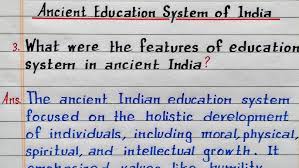 Ancient Education System of India
3. What were the features of education
system in ancient India?
Ans. The ancient Indian education system
focused on the holistic development
of individuals, including moral, physical,
spiritual, and intellectual growth. It
emphasized values like humility,